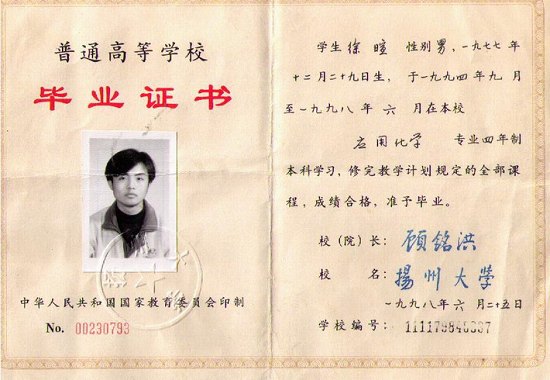 普通高等学校
毕业证书
中华人民共和国国家教育委员会印制
No. 00230793
学生 徐暄 性别男,一九七七年
十二月二十九日生, 于一九九四年九月
至一九九八年六月在本校
应用化学 专业四年制
本科学习,修完教学计划规定的全部课
程,成绩合格,准予毕业。
校(院)长: 顾铭洪
校 名: 揚州大学
一九九八年六月二十五日
学校编号: